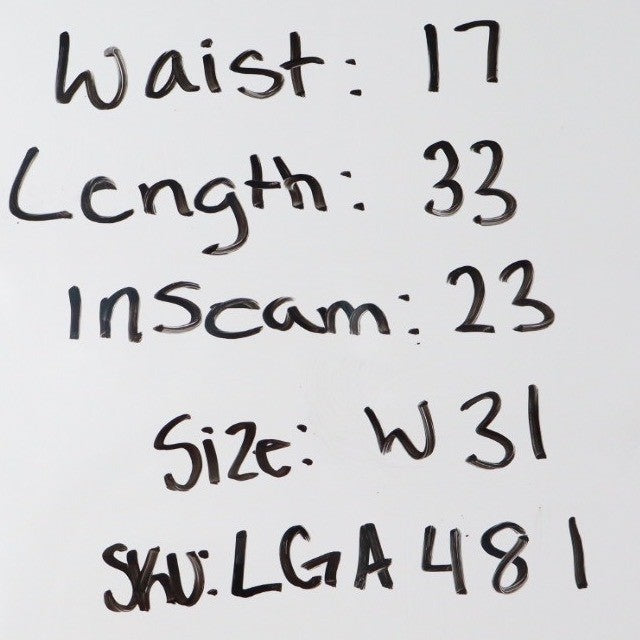 Waist: 17
Length: 33
Inseam: 23
Size: W 31
SKU: LGA 481